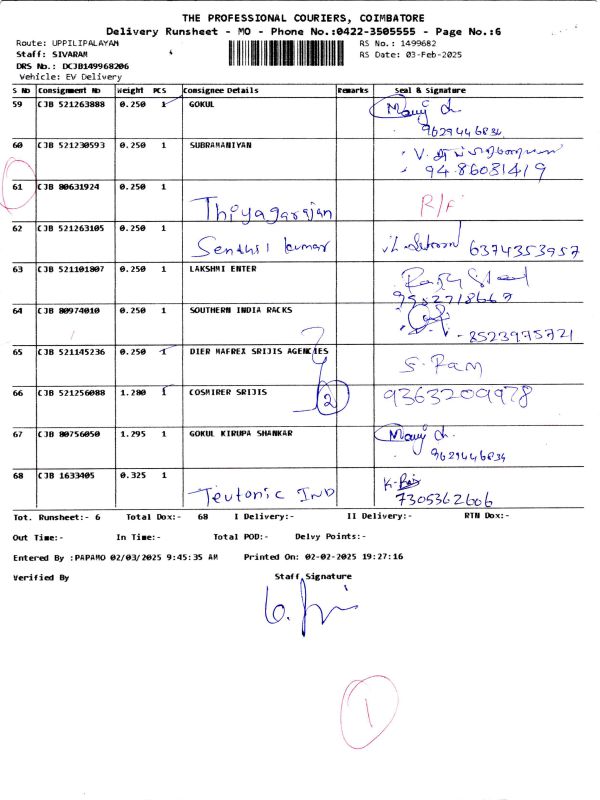 THE PROFESSIONAL COURIERS, COIMBATORE
Delivery Runsheet - MO - Phone No.:0422-3505555 - Page No.:6
Route: UPPILIPALAYAM RS No.: 1499682
Staff: SIVARAM RS Date: 03-Feb-2025
DRS No.: DCJB149968206
Vehicle: EV Delivery
S No Consignment No Weight PCS Consignee Details Remarks Seal & Signature
59 CJB 521263888 0.250 1 GOKUL
9629446834
60 CJB 521230593 0.250 1 SUBRAMANIYAN
9486081419
61 CJB 80631924 0.250 1
Thiyagarajan
62 CJB 521263105 0.250 1
Senthil kumar 6374353957
63 CJB 521101807 0.250 1 LAKSHMI ENTER
64 CJB 80974010 0.250 1 SOUTHERN INDIA RACKS
8523975721
65 CJB 521145236 0.250 1 DIER MAFREX SRIJIS AGENCIES
S. Ram
66 CJB 521256088 1.280 1 COSMIRER SRIJIS 2 9363209978
67 CJB 80756050 1.295 1 GOKUL KIRUPA SHANKAR
9629446834
68 CJB 1633405 0.325 1
Teutonic IND 7305362606
Tot. Runsheet:- 6 Total Dox:- 68 I Delivery:- II Delivery:- RTN Dox:-
Out Time:- In Time:- Total POD:- Delvy Points:-
Entered By :PAPAMO 02/03/2025 9:45:35 AM Printed On: 02-02-2025 19:27:16
Verified By Staff Signature
1